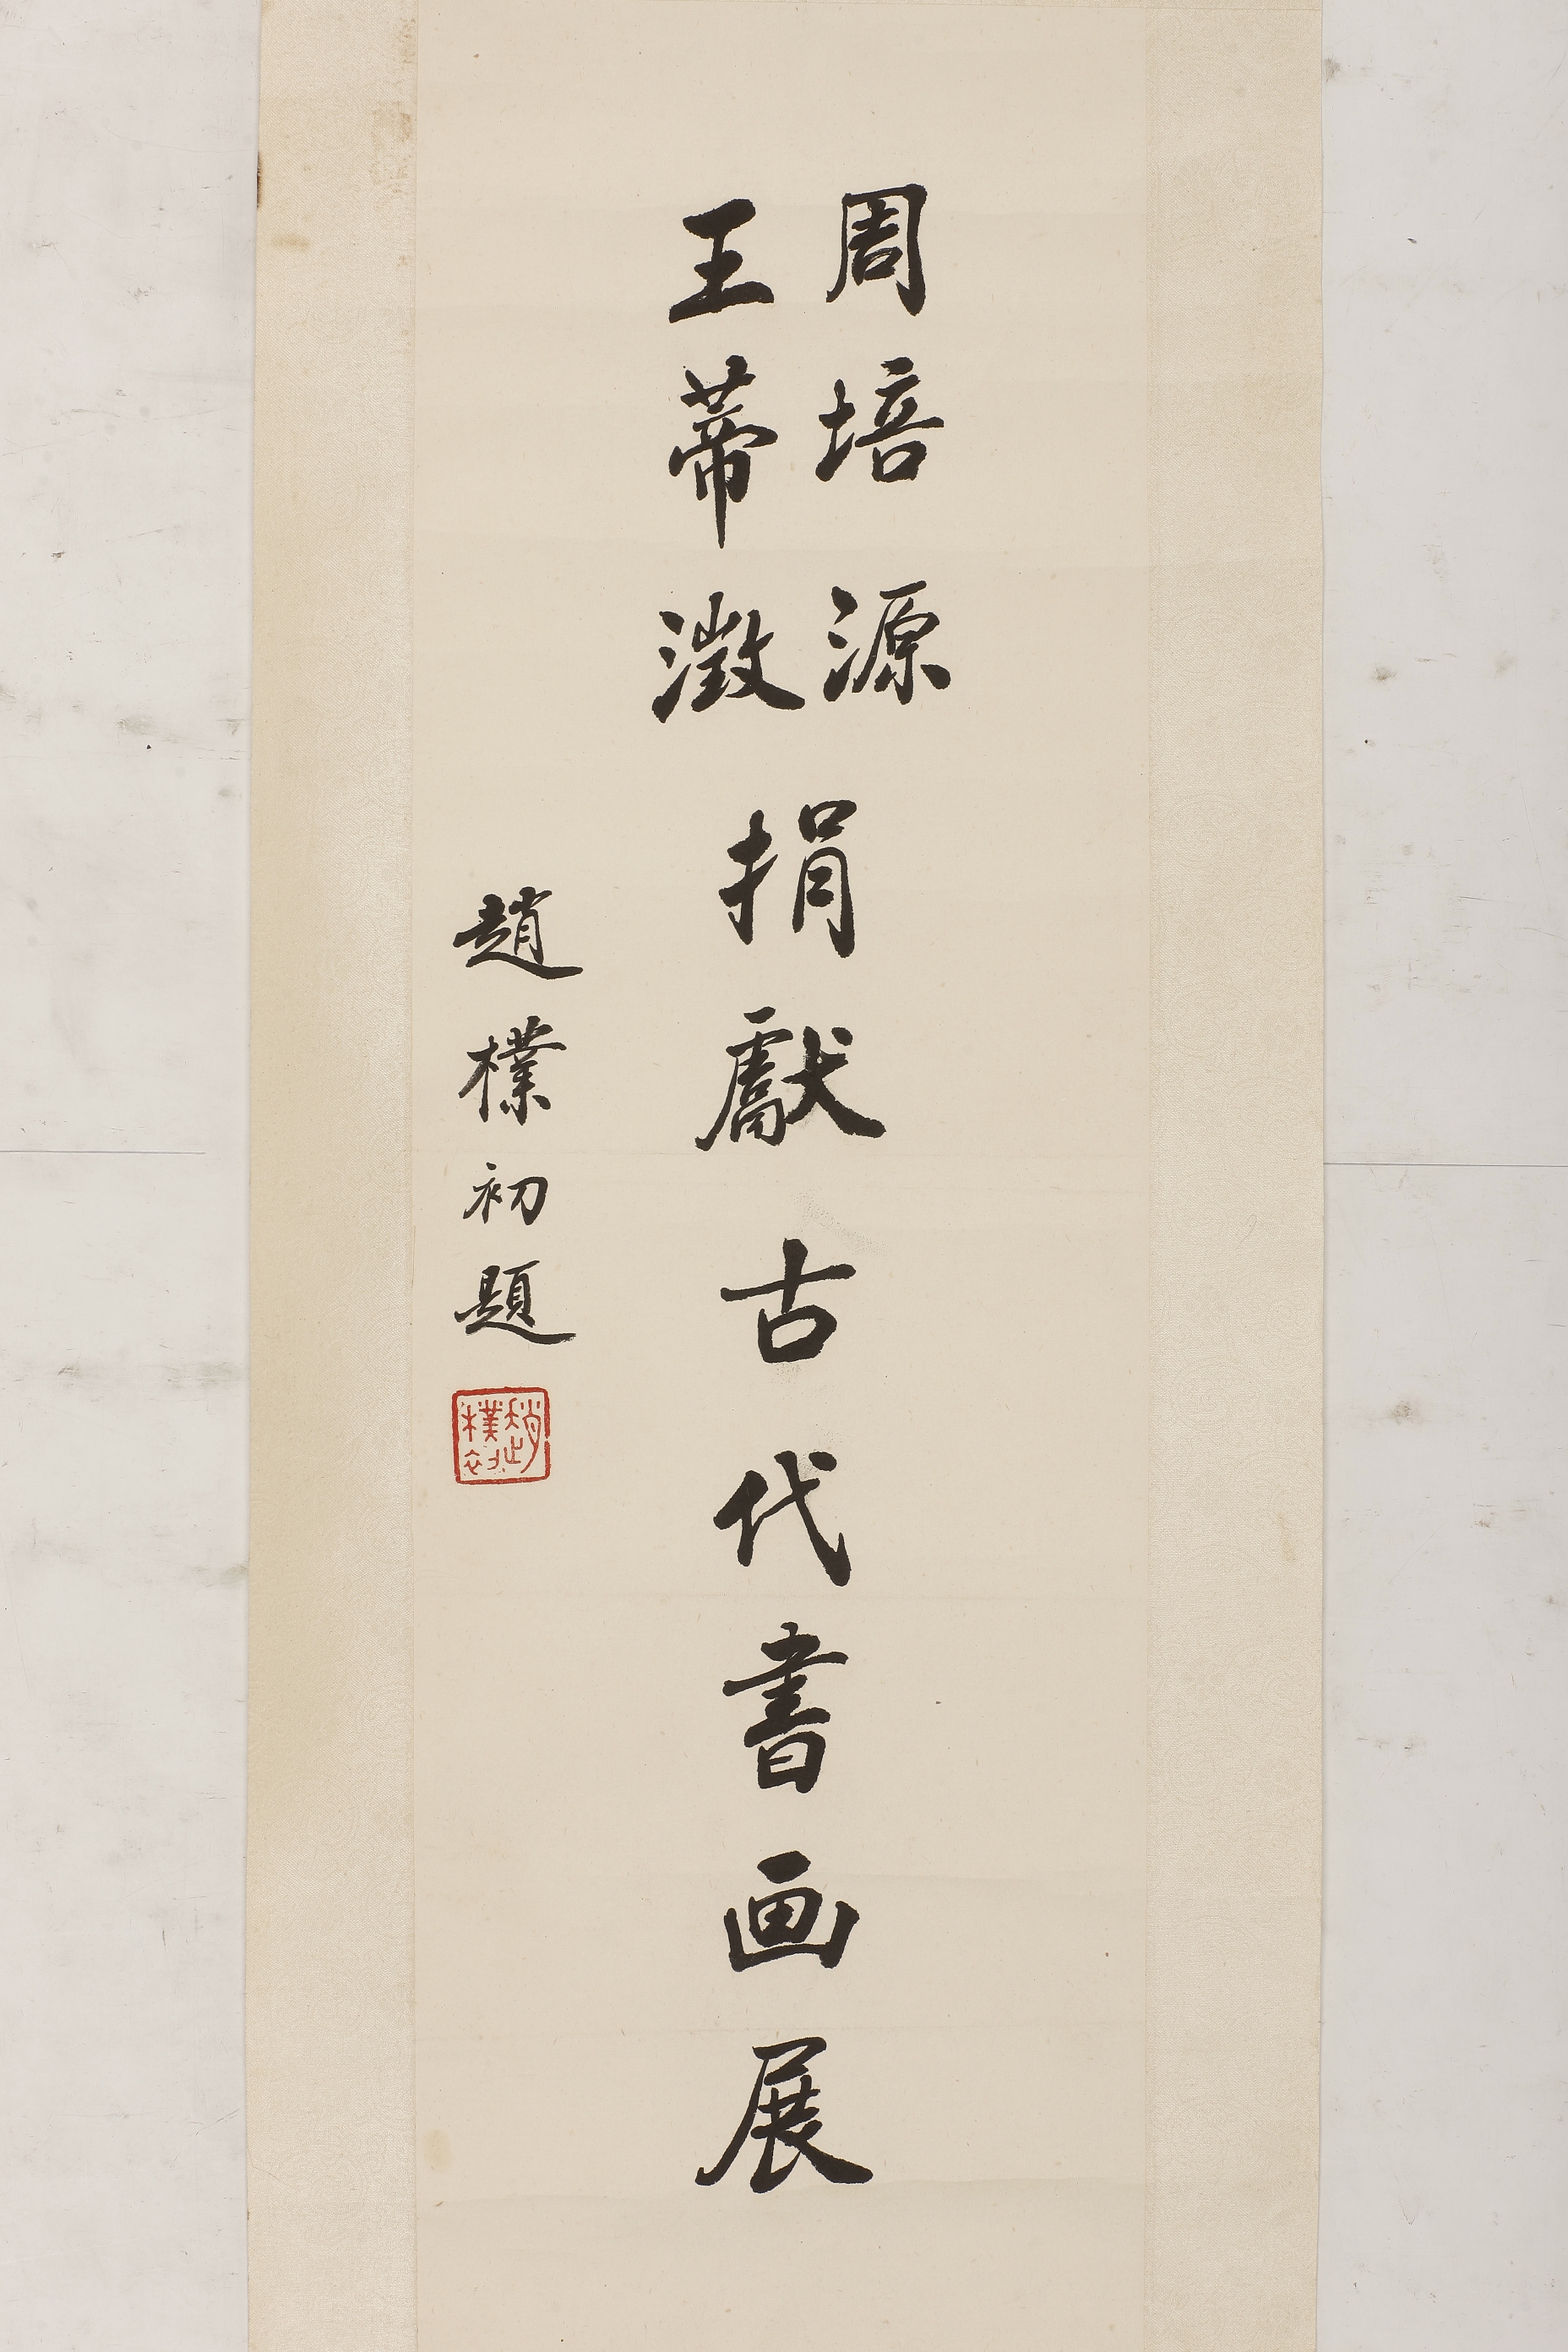 周培源
王蒂澂
捐獻古代書画展
趙樸初題
趙樸初